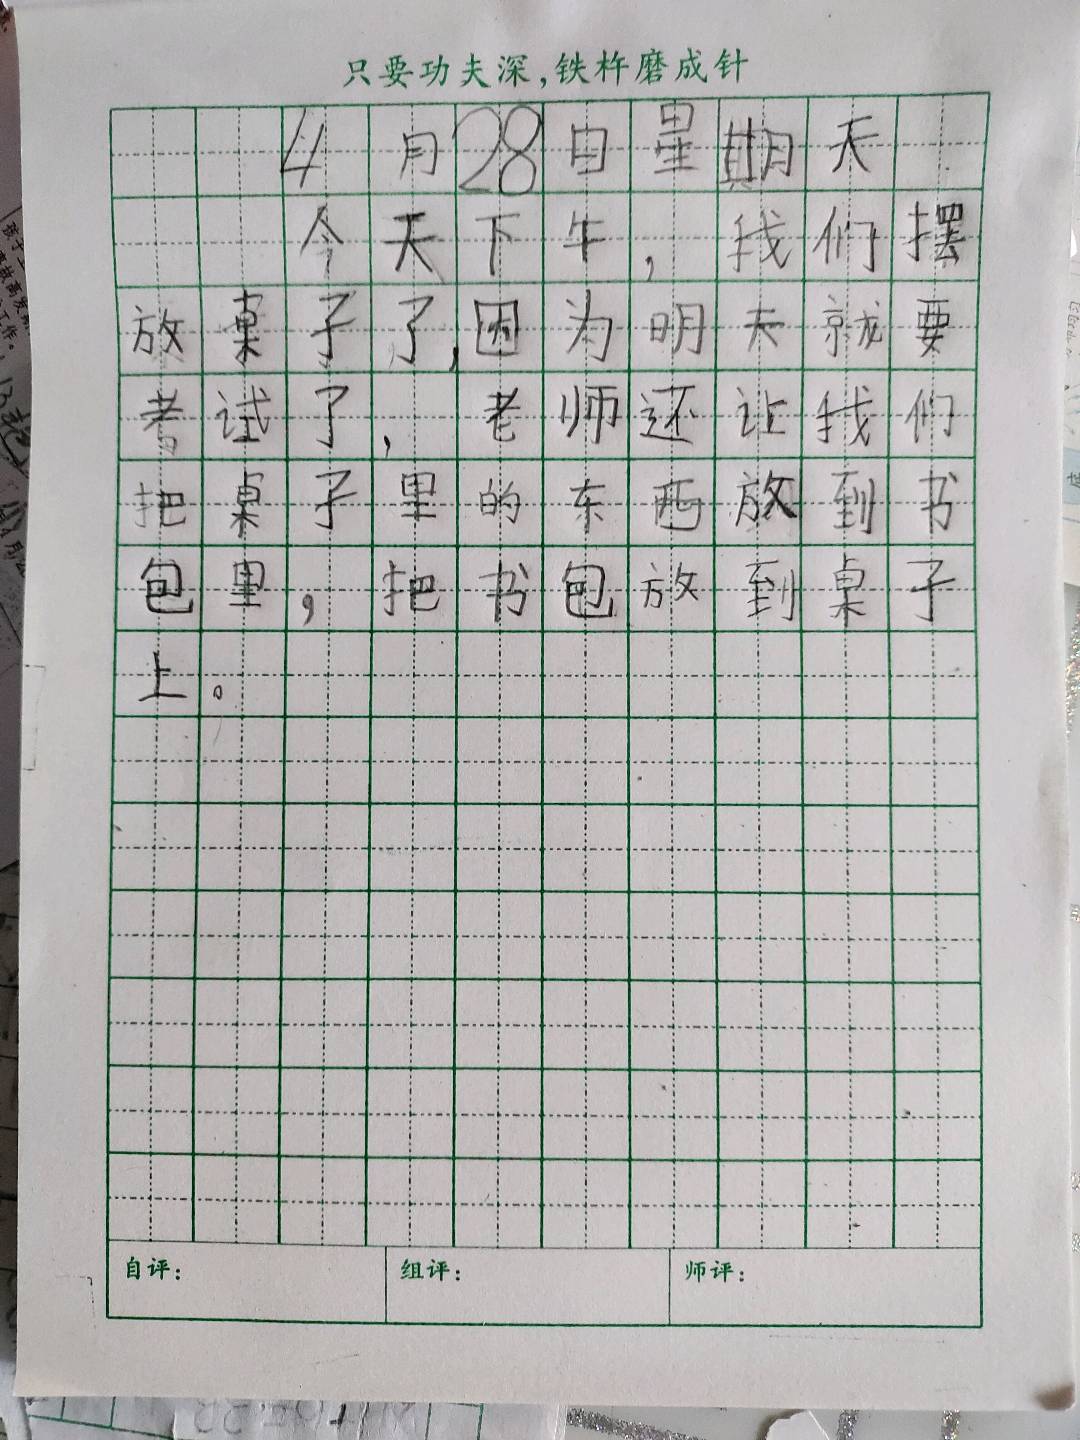 只要功夫深,铁杵磨成针
4月28日星期天
今天下午,我们摆
放桌子了,因为明天就要
考试了,老师还让我们
把桌子里的东西放到书
包里,把书包放到桌子
上。
自评: 组评: 师评: